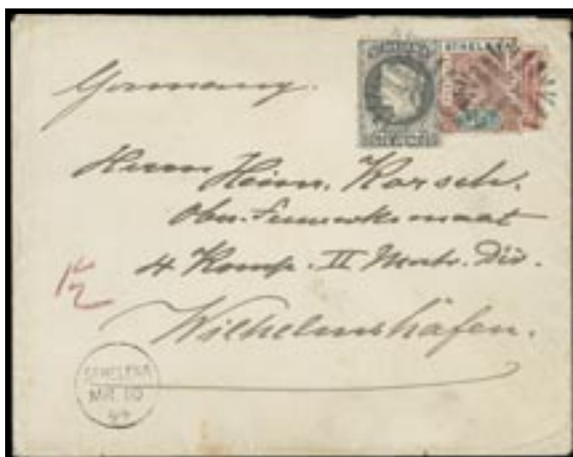 ST HELENA
Germany.
Herrn Heinr. Korsch.
Ober. Feuerwksmaat
4 Komp. II Matr. Div.
Wilhelmshäfen.
ST HELENA
MR 10